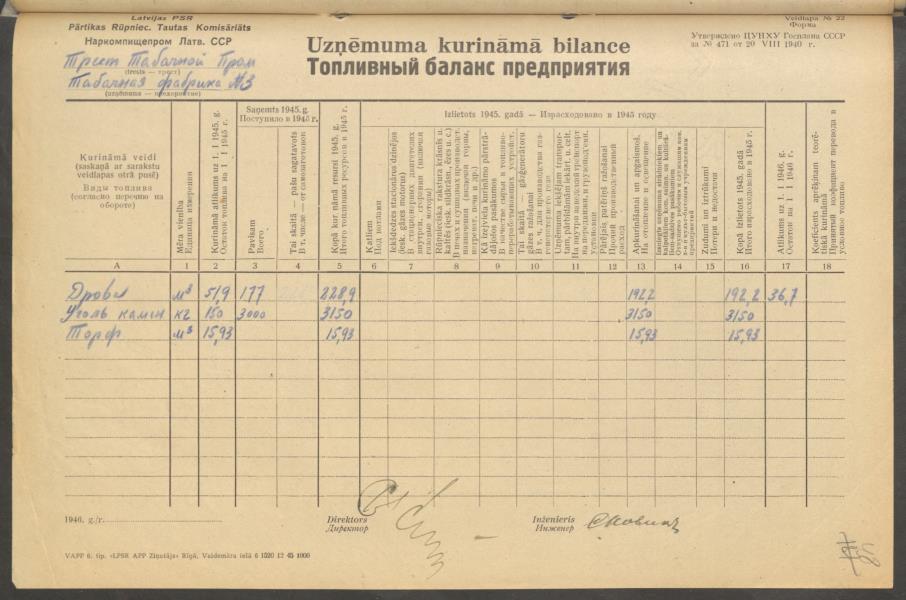 Latvijas PSR
Pārtikas Rūpniec. Tautas Komisāriāts
Наркомпищепром Латв. ССР
Трест Табачной Пром
(trests — трест)
Табачная фабрика №3
(uzņēmums — предприятие)
Uzņēmuma kurināmā bilance
Топливный баланс предприятия
Veidlapa № 22
Форма
Утверждено ЦУНХУ Госплана СССР
за № 471 от 20 VIII 1940 г.
Kurināmā veidi
(saskaņā ar sarakstu
veidlapas otrā pusē)
Виды топлива
(согласно перечню на
обороте)
Mēra vienība
Единица измерения
Kurināmā atlikums uz 1. I 1945. g.
Остаток топлива на 1 I 1945 г.
Saņemts 1945. g.
Поступило в 1945 г.
Pavisam
Всего
Tai skaitā — pašu sagatavots
В т. числе — от самозаготовок
Kopā kur. nāmā resursi 1945. g.
Итого топливных ресурсов в 1945 г.
Izlietots 1945. gadā — Израсходовано в 1945 году
Katliem
Под котлами
Iekšdedzes stacionārus dzinējos
(iesk. gāzes motorus)
В стационарных двигателях
внутрен. сгорания (включая
газовые моторы)
Rūpnieciska rakstura krāsnīs u.
В печах и сушилках производст.
назначения (включая горны,
Kā izejvielu kurināmo pārstrā-
dājošos pasākumos
В качестве сырья в топливо-
перерабатывающих устройст.
Tai skaitā — gāzģenerātoru
gāzes ražošanai
В т. ч. для производства га-
зогенераторного газа
Uzņēmuma iekšējam transpor-
tam, pārbīdāmām iekārt. u. celt.
На внутризаводский транспорт
Pārējās purēriņš ražošanai
Прочий производственный
расход
Apkurināšanai un apgaismoš.
На отопление и освещение
Zudumi un iztrūkumi
Потери и недостачи
Kopā izlietots 1945. gadā
Итого израсходовано в 1945 г.
Atlikums uz 1. I 1946. g.
Остаток на 1 I 1946 г.
Koeficients aprēķinam teorē-
tiskā kurināmā
Принятый коэффициент перевода в
условное топливо
A 1 2 3 4 5 6 7 8 9 10 11 12 13 14 15 16 17 18
Дрова м³ 51,9 177 228,9 192,2 192,2 36,7
Уголь камен кг 150 3000 3150 3150 3150
Торф м³ 15,93 15,93 15,93 15,93
1946. g./г.
Direktors
Директор
Inženieris
Инженер
VAPP 6. tip. «LPSR APP Ziņotājs» Rīgā, Valdemāra ielā 6 1520 12 45 1000